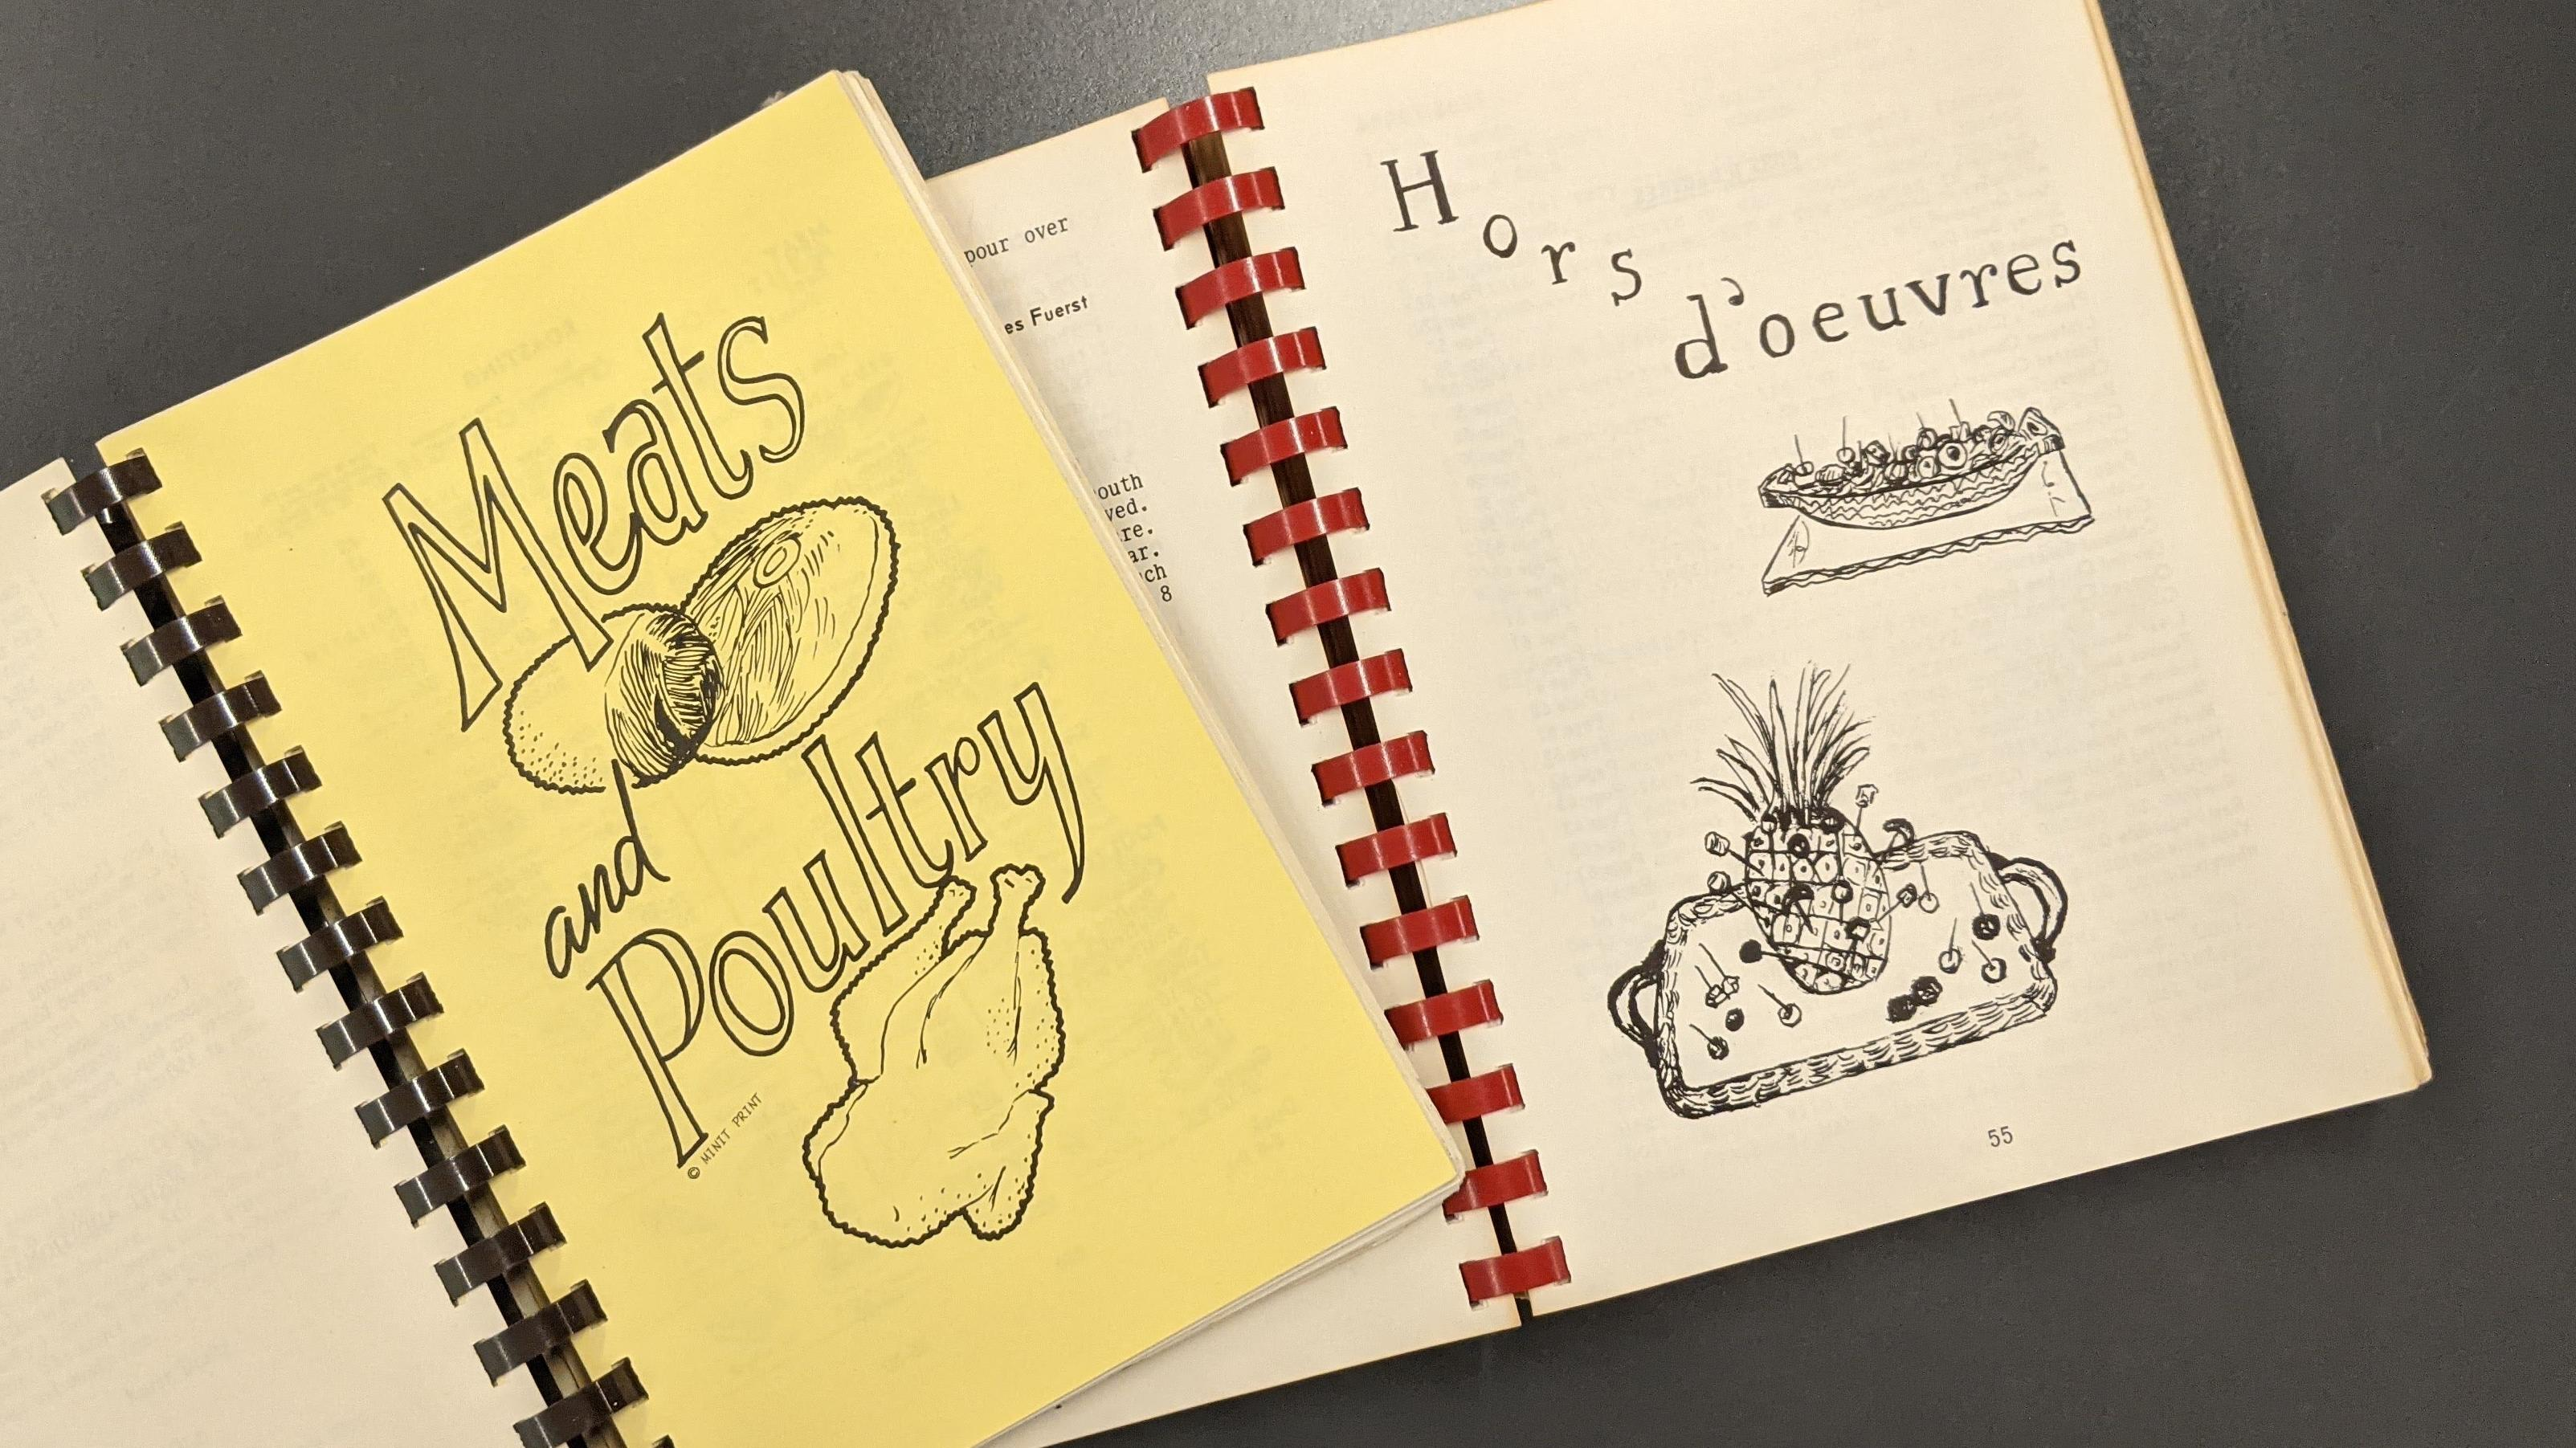 Meats
and
Poultry
© MINIT PRINT
pour over
es Fuerst
outh
ved.
re.
ar.
ch
8
Hors
d'oeuvres
55